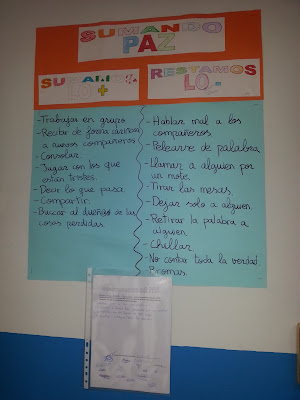 SUMANDO
PAZ
SUMAMOS
LO +
RESTAMOS
LO -
- Trabajar en grupo
- Recibir de forma cariñosa
a nuevos compañeros
- Consolar.
- Jugar con los que
están tristes.
- Decir lo que pasa.
- Compartir.
- Buscar al dueño/a de las
cosas perdidas.
- Hablar mal a los
compañeros.
- Pelearse de palabra.
- Llamar a alguien por
un mote.
- Tirar las mesas.
- Dejar solo a alguien.
- Retirar la palabra a
alguien
- Chillar.
- No contar toda la verdad.
- Bromas.